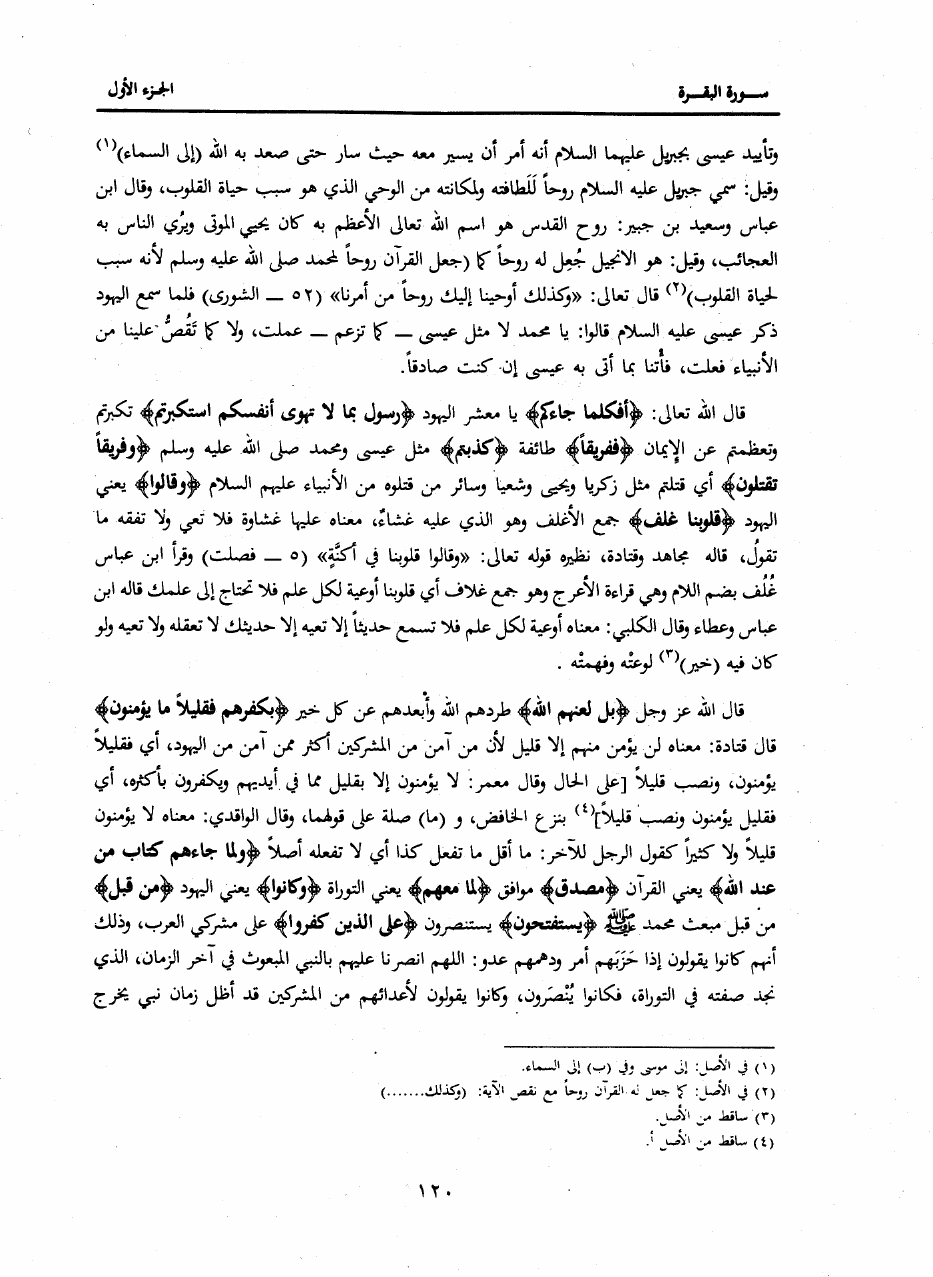 سـورة البقـرة
الجزء الأول
وتأييد عيسى بجبريل عليهما السلام أنه أمر أن يسير معه حيث سار حتى صعد به الله (إلى السماء)(١)
وقيل: سمي جبريل عليه السلام روحاً لَلَطافته ولمكانته من الوحي الذي هو سبب حياة القلوب، وقال ابن
عباس وسعيد بن جبير: روح القدس هو اسم الله تعالى الأعظم به كان يحيي الموتى ويُري الناس به
العجائب، وقيل: هو الانجيل جُعِل له روحاً كما (جعل القرآن روحاً لمحمد صلى الله عليه وسلم لأنه سبب
لحياة القلوب)(٢) قال تعالى: «وكذلك أوحينا إليك روحاً من أمرنا» (٥٢ ــ الشورى) فلما سمع اليهود
ذكر عيسى عليه السلام قالوا: يا محمد لا مثل عيسى ــ كما تزعم ــ عملت، ولا كما تَقُصُّ علينا من
الأنبياء فعلت، فأْتنا بما أتى به عيسى إن كنت صادقاً.
قال الله تعالى: ﴿أفكلما جاءكم﴾ يا معشر اليهود ﴿رسول بما لا تهوى أنفسكم استكبرتم﴾ تكبرتم
وتعظمتم عن الإِيمان ﴿ففريقاً﴾ طائفة ﴿كذبتم﴾ مثل عيسى ومحمد صلى الله عليه وسلم ﴿وفريقاً
تقتلون﴾ أي قتلتم مثل زكريا ويحيى وشعيا وسائر من قتلوه من الأنبياء عليهم السلام ﴿وقالوا﴾ يعني
اليهود ﴿قلوبنا غلف﴾ جمع الأغلف وهو الذي عليه غشاءٌ، معناه عليها غشاوة فلا تعي ولا تفقه ما
تقولُ، قاله مجاهد وقتادة، نظيره قوله تعالى: «وقالوا قلوبنا في أكنَّةٍ» (٥ ــ فصلت) وقرأ ابن عباس
غُلُف بضم اللام وهي قراءة الأعرج وهو جمع غلاف أي قلوبنا أوعية لكل علم فلا تحتاج إلى علمك قاله ابن
عباس وعطاء وقال الكلبي: معناه أوعية لكل علم فلا تسمع حديثاً إلا تعيه إلا حديثك لا تعقله ولا تعيه ولو
كان فيه (خير)(٣) لوعتْه وفهمتْه .
قال الله عز وجل ﴿بل لعنهم الله﴾ طردهم الله وأبعدهم عن كل خير ﴿بكفرهم فقليلاً ما يؤمنون﴾
قال قتادة: معناه لن يؤمن منهم إلا قليل لأن من آمن من المشركين أكثر ممن آمن من اليهود، أي فقليلاً
يؤمنون، ونصب قليلاً [على الحال وقال معمر: لا يؤمنون إلا بقليل مما في أيديهم ويكفرون بأكثره، أي
فقليل يؤمنون ونصب قليلاً](٤) بنزع الخافض، و (ما) صلة على قولهما، وقال الواقدي: معناه لا يؤمنون
قليلاً ولا كثيراً كقول الرجل للآخر: ما أقل ما تفعل كذا أي لا تفعله أصلاً ﴿ولما جاءهم كتاب من
عند الله﴾ يعني القرآن ﴿مصدق﴾ موافق ﴿لما معهم﴾ يعني التوراة ﴿وكانوا﴾ يعني اليهود ﴿من قبل﴾
من قبل مبعث محمد ﷺ ﴿يستفتحون﴾ يستنصرون ﴿على الذين كفروا﴾ على مشركي العرب، وذلك
أنهم كانوا يقولون إذا حَزَبَهم أمر ودهمهم عدو: اللهم انصرنا عليهم بالنبي المبعوث في آخر الزمان، الذي
نجد صفته في التوراة، فكانوا يُنْصَرون، وكانوا يقولون لأعدائهم من المشركين قد أظل زمان نبي يخرج
(١) في الأصل: إلى موسى وفي (ب) إلى السماء.
(٢) في الأصل: كما جعل له القرآن روحاً مع نقص الآية: (وكذلك.......)
(٣) ساقط من الأصل.
(٤) ساقط من الأصل أ.
١٢٠